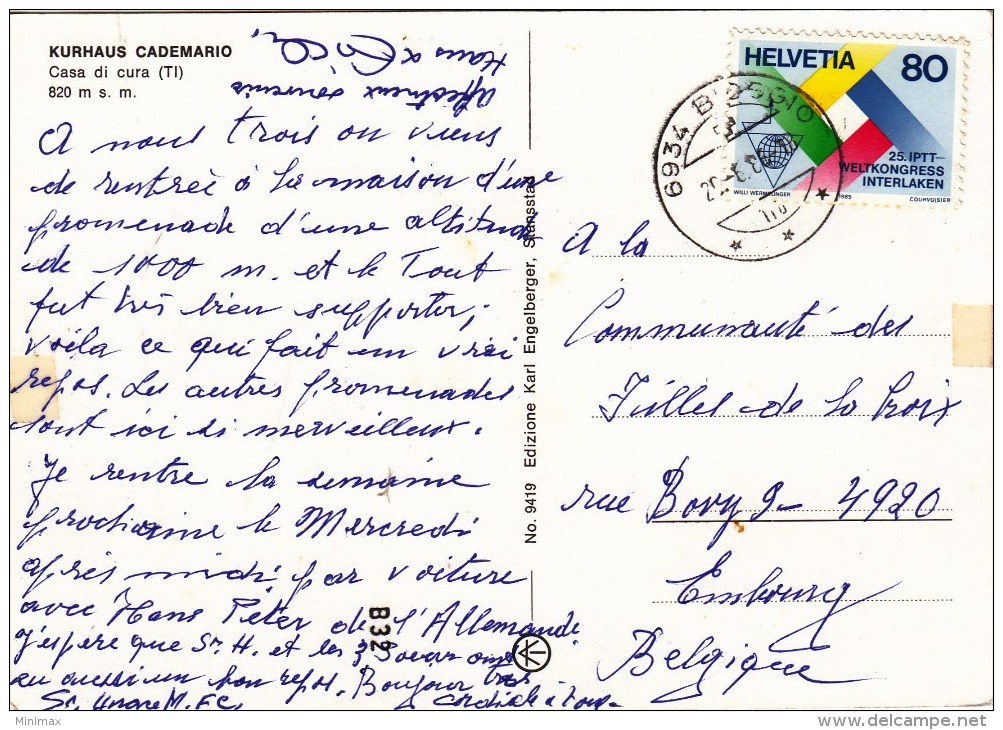 KURHAUS CADEMARIO
Casa di cura (TI)
820 m s. m.
Affectueux souvenir
Hans &
A nous trois on viens
de rentrée à la maison d'une
promenade d'une altitude
de 1000 m. et le Tout
fut très bien supporter,
voila ce qui fait un vrai
repos. Les autres promenades
sont ici si merveilleux.
Je rentre la semaine
prochaine le Mercredi
après midi par voiture
avec Hans Péter de l'Allemande
J'espère que Sr. H. et les 3 Soeurs ont
eu aussi un bon repos. Bonjour très
Sr. M. F.C. cordiale à tous
No. 9419 Edizione Karl Engelberger, Stansstad
B32
HELVETIA 80
25. IPTT-
WELTKONGRESS
INTERLAKEN
WILLI WERMELINGER 1985 COURVOISIER
6934 BIOGGIO
A la
Communauté des
Filles de la Croix
rue Bovy 9 - 4920
Embourg
Belgique
Minimax
delcampe.net